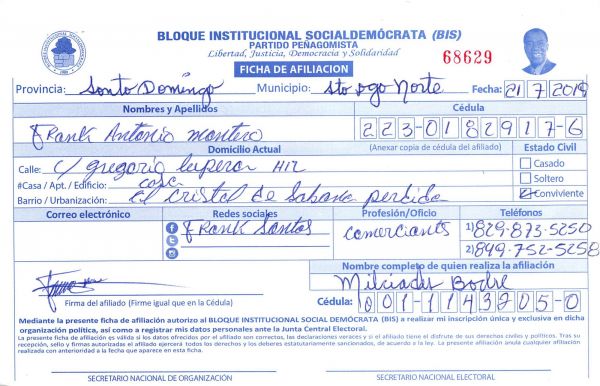 BLOQUE INSTITUCIONAL SOCIALDEMÓCRATA (BIS)
PARTIDO PEÑAGOMISTA
Libertad, Justicia, Democracia y Solidaridad
68629
FICHA DE AFILIACION
Provincia: Santo Domingo Municipio: Sto Dgo Norte Fecha: 21/7/2019
Nombres y Apellidos Cédula
Frank Antonio montero 223-0182917-6
Domicilio Actual (Anexar copia de cédula del afiliado) Estado Civil
Calle: C/ gregorio luperon
Casado
#Casa / Apt. / Edificio: casa
Soltero
Barrio / Urbanización: el cristal de Sabana perdida
Conviviente
Correo electrónico Redes sociales Profesión/Oficio Teléfonos
Frank Santos comerciante 1) 829-873-5250
2) 849-752-5258
Nombre completo de quien realiza la afiliación
Milciades
Firma del afiliado (Firme igual que en la Cédula) Cédula: 001-1143205-0
Mediante la presente ficha de afiliación autorizo al BLOQUE INSTITUCIONAL SOCIAL DEMÓCRATA (BIS) a realizar mi inscripción única y exclusiva en dicha
organización política, así como a registrar mis datos personales ante la Junta Central Electoral.
La presente ficha de afiliación es válida si los datos ofrecidos por el afiliado son correctos, las declaraciones veraces y si el afiliado tiene el disfrute de sus derechos civiles y políticos. Tras su
recepción, sello y firmas autorizadas el afiliado ejercerá todos los derechos y los deberes estatutariamente sancionados, de acuerdo a la ley. La presente afiliación anula cualquier afiliación
realizada con anterioridad a la fecha que aparece en esta ficha.
SECRETARIO NACIONAL DE ORGANIZACIÓN SECRETARIO NACIONAL ELECTORAL